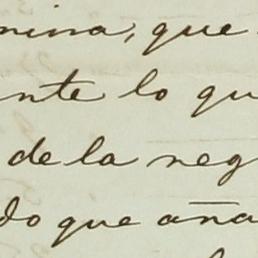 mina, que
nte lo qu
de la neg
do que aña